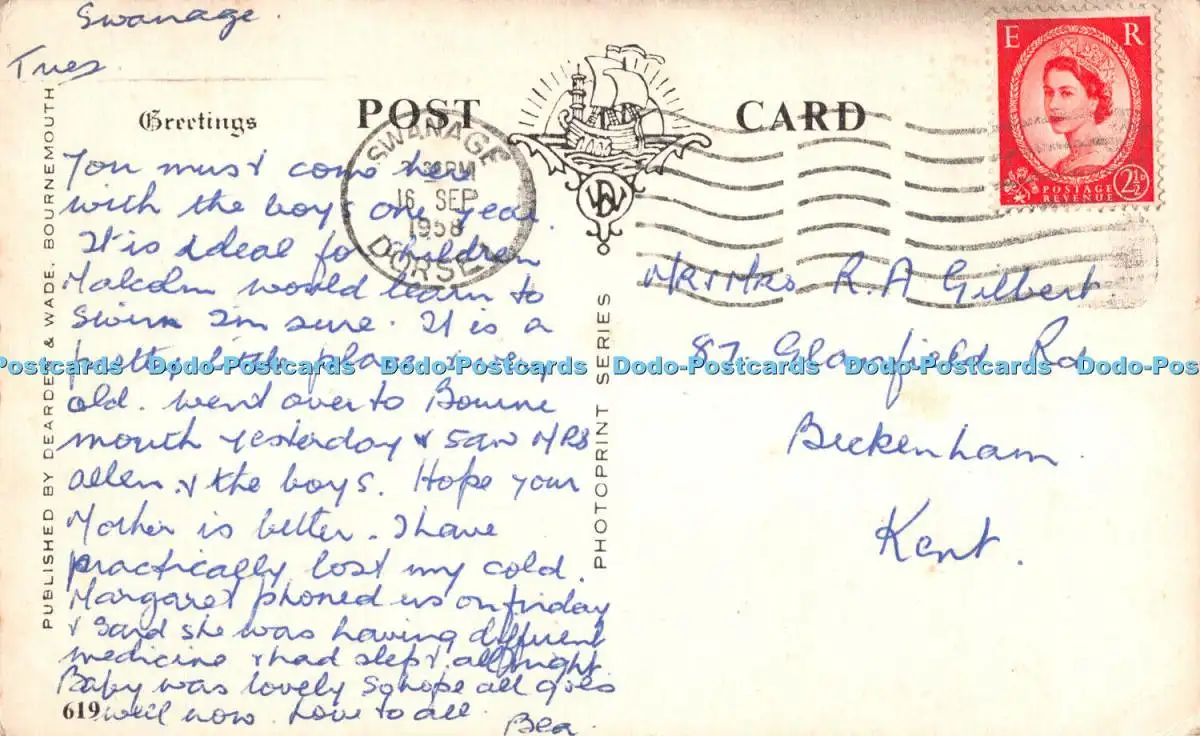 Swanage.
Tues
Greetings
POST CARD
E R
POSTAGE
REVENUE
2½D
SWANAGE
30 PM
16 SEP
1958
DORSET
DW
You must come here
with the boys one year.
It is ideal for children
Malcolm would learn to
swim I'm sure. It is a
pretty little place & very
old. Went over to Bourne
mouth yesterday & saw MRS
allen. & the boys. Hope your
Mother is better. I have
practically lost my cold.
Margaret phoned us on friday
& said she was having different
medicine & had slept all night
Baby was lovely so hope all goes
well now. Love to all.
Bea.
MR & Mrs R. A Gilbert
87. Glanfield Rd
Beckenham
Kent.
PUBLISHED BY DEARDEN & WADE, BOURNEMOUTH
PHOTOPRINT SERIES
619
Dodo-Postcards Dodo-Postcards Dodo-Postcards Dodo-Postcards Dodo-Postcards Dodo-Pos